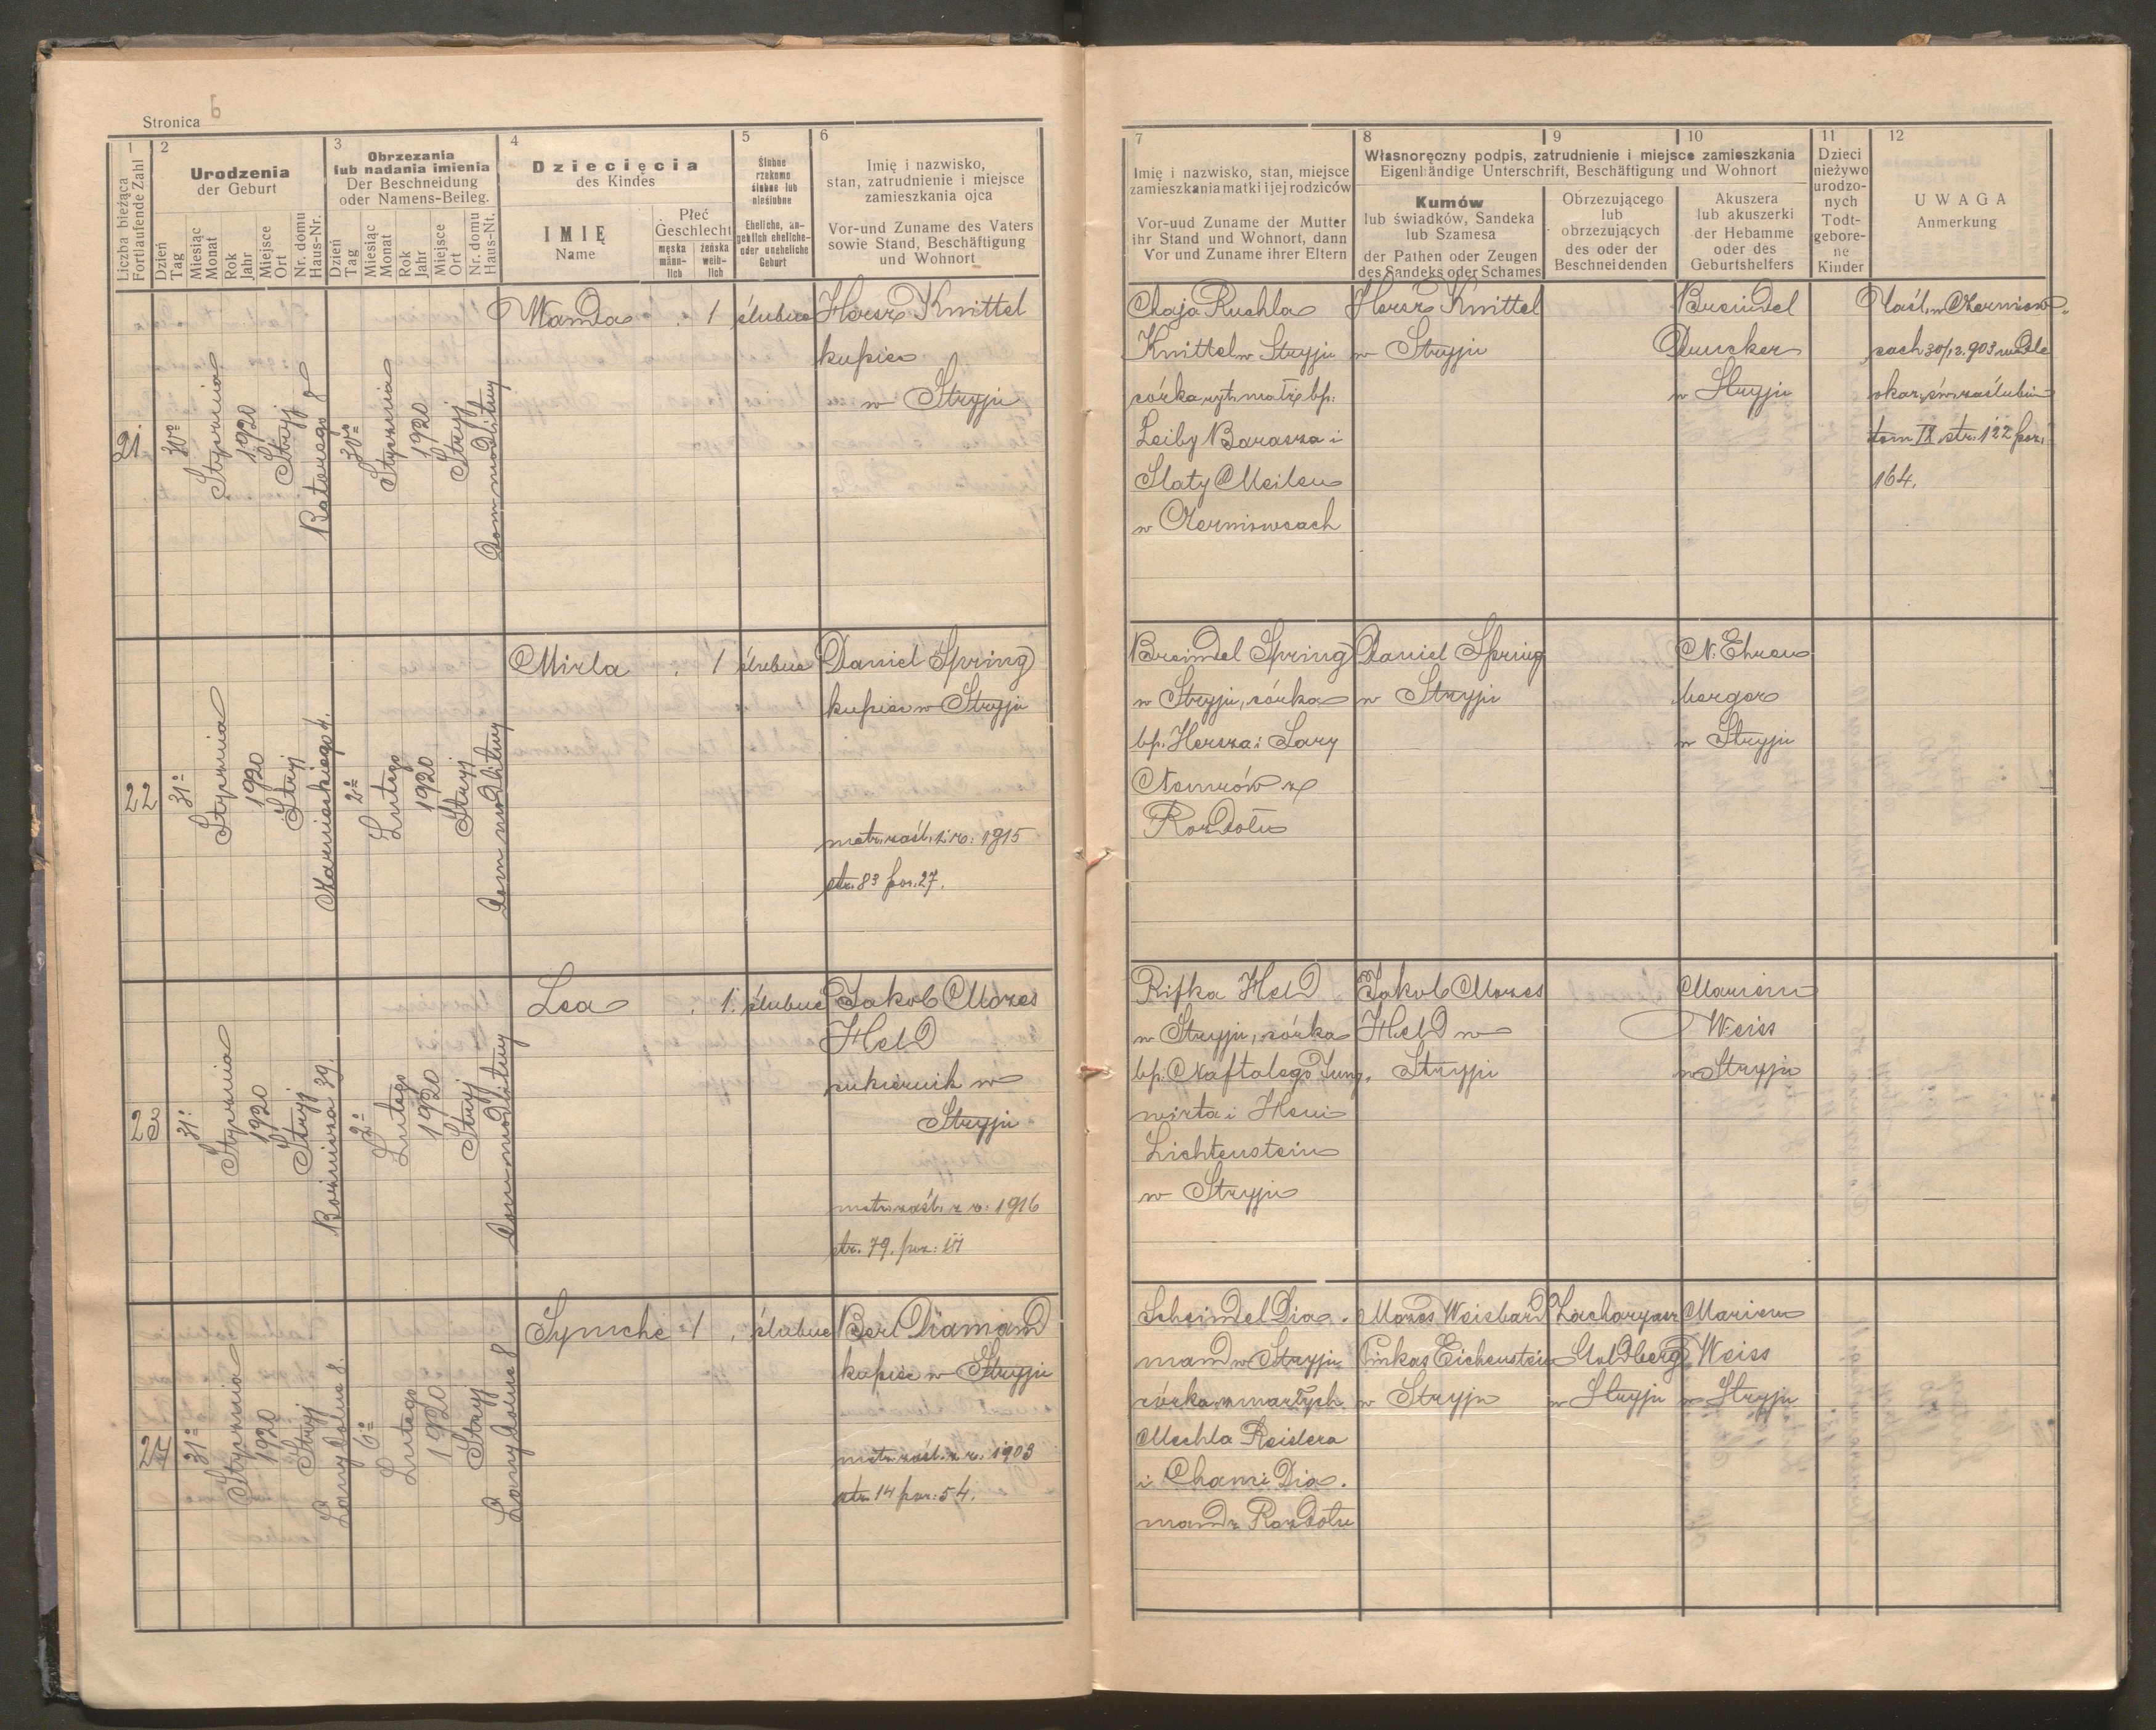 Stronica 6
1
2
3
4
5
6
Liczba bieżąca
Fortlaufende Zahl
Urodzenia
der Geburt
Dzień
Tag
Miesiąc
Monat
Rok
Jahr
Miejsce
Ort
Nr. domu
Haus-Nr.
Obrzezania
lub nadania imienia
Der Beschneidung
oder Namens-Beileg.
Dzień
Tag
Miesiąc
Monat
Rok
Jahr
Miejsce
Ort
Nr. domu
Haus-Nt.
Dziecięcia
des Kindes
IMIĘ
Name
Płeć
Geschlecht
męska
männ-
lich
żeńska
weib-
lich
Ślubne
rzekomo
ślubne lub
nieślubne
Eheliche, an-
geblich eheliche-
oder uneheliche
Geburt
Imię i nazwisko,
stan, zatrudnienie i miejsce
zamieszkania ojca
Vor-und Zuname des Vaters
sowie Stand, Beschäftigung
und Wohnort
7
8
9
10
11
12
Imię i nazwisko, stan, miejsce
zamieszkania matki i jej rodziców
Vor-uud Zuname der Mutter
ihr Stand und Wohnort, dann
Vor und Zuname ihrer Eltern
Własnoręczny podpis, zatrudnienie i miejsce zamieszkania
Eigenhändige Unterschrift, Beschäftigung und Wohnort
Kumów
lub świadków, Sandeka
lub Szamesa
der Pathen oder Zeugen
des Sandeks oder Schames
Obrzezującego
lub
obrzezujących
des oder der
Beschneidenden
Akuszera
lub akuszerki
der Hebamme
oder des
Geburtshelfers
Dzieci
nieżywo
urodzo-
nych
Todt-
gebore-
ne
Kinder
UWAGA
Anmerkung
21.
30º
Stycznia
1920
Stryj
Batorego 8
30º
Stycznia
1920
Stryj
Dom modlitwy
Wanda
. 1
ślubne
Hersz Knittel
kupiec
w Stryju
Chaja Ruchla
Knittel w Stryju
córka ryt. małż. bp.
Leiby Barasza i
Slaty Meilen
w Czerniowcach
Hersz Knittel
w Stryju
Breindel
Duncker
w Stryju
Zaśl. w Czerniow-
cach 30/12. 903 wedle
okaz. św. zaślubin
tom IX. str. 122 poz.
164.
22
31º
Stycznia
1920
Stryj
Czarnieckiego 4.
2º
Lutego
1920
Stryj
Dom modlitwy
Mirla
. 1
ślubne
Daniel Spring
kupiec w Stryju
metr. zaśl. z r. 1915
str. 83 poz. 27.
Breindel Spring
w Stryju, córka
bp. Hersza i Sary
Nemrów z
Rozdołu
Daniel Spring
w Stryju
N. Ehren
berger
w Stryju
23
31º
Stycznia
1920
Stryj
Bóżnicza 39.
2º
Lutego
1920
Stryj
Dom modlitwy
Lea
. 1.
ślubne
Jakob Mozes
Held
cukiernik w
Stryju
metr. zaśl. z r. 1916
str. 79. poz:
Rifka Held
w Stryju, córka
bp. Naftalego Jung.
wirta i Heni
Lichtenstein
w Stryju
Jakob Mozes
Held w
Stryju
Mariem
Weiss
w Stryju
24
31º
Stycznia
1920
Stryj
Łany dolne 8.
6º
Lutego
1920
Stryj
Łany dolne 8
Symche
1 .
ślubne
Berl Diamand
kupiec w Stryju
metr. zaśl. z r. 1903
str. 14 poz: 54.
Scheindel Dia.
mand w Stryju
córka zmarłych
Mechla Reislera
i Chami Dia.
mand z Rozdołu
Mozes Weisbard
Pinkas Eichenstein
w Stryju
Zacharyasz
Goldberg
w Stryju
Mariem
Weiss
w Stryju